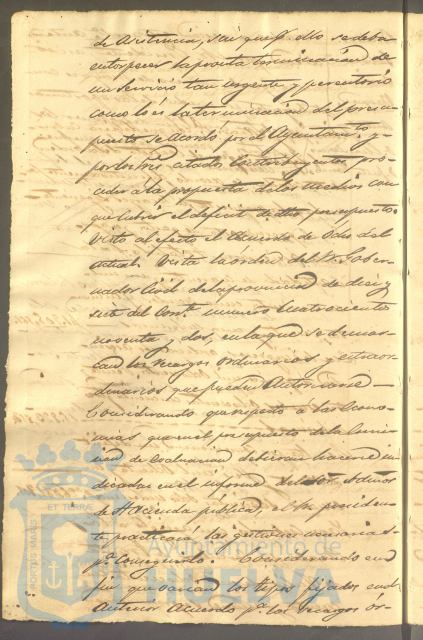 de asistencia, sin que p.r ello se deba
entorpecer la pronta terminacion de
un servicio tan urgente y perentorio
como lo es la terminacion del presu-
puesto se acordó por el Ayuntam.to y
por los Sres. citados contribuyentes, pro-
ceder á la propuesta de los medios con
que cubrir el deficit de dho presupuesto.
Visto al efecto el acuerdo de ocho del
actual. Vista la órden del Sr. Gober-
nador Civil de la provincia de diez y
siete del corr.te numero cuatrocientos
noventa y dos, en la que se demar-
can los recargos ordinarios y extraor-
dinarios que pueden autorizarse —
Considerando que respecto á las econo-
mias que en el presupuesto de la Comi-
sion de evaluacion debieran hacerse in-
dicadas en el informe del
de Hacienda pública, el Sr. presiden-
te practicará las gestiones necesarias
p.a conseguirlo. Considerando en
fin que varian los tipos fijados en el
anterior acuerdo p.a los recargos ór-
Ayuntamiento de
HUELVA
PORTUS MARIS
ET TERRÆ